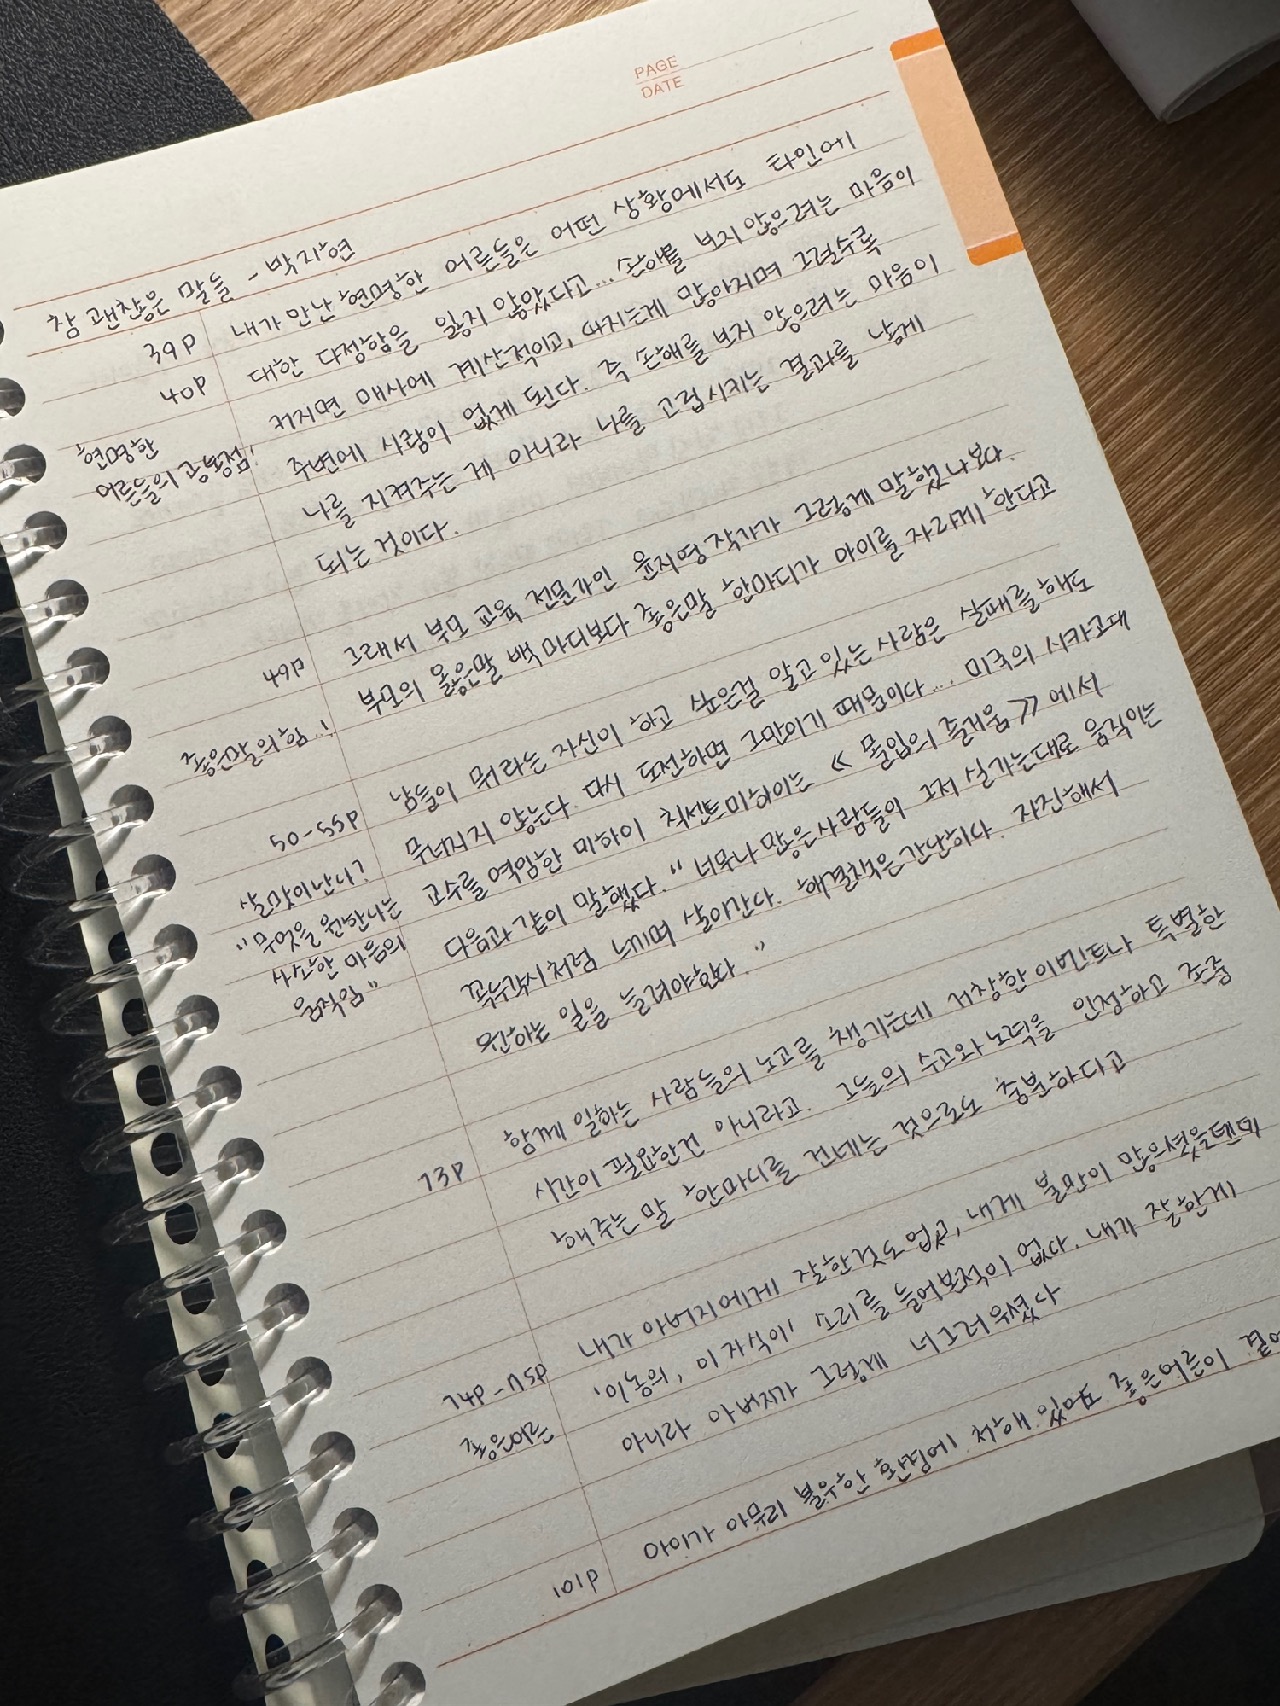 PAGE
DATE
참 괜찮은 말들 - 박지연
39P 내가 만난 현명한 어른들은 어떤 상황에서도 타인에
40P 대한 다정함을 잃지 않았다고... 손해를 보지 않으려는 마음이
커지면 매사에 계산적이고, 따지는게 많아지며 그럴수록
현명한 주변에 사람이 없게 된다. 즉 손해를 보지 않으려는 마음이
어른들의 공통점! 나를 지켜주는 게 아니라 나를 고립시키는 결과를 낳게
되는 것이다.
49P 그래서 부모 교육 전문가인 윤지영 작가가 그렇게 말했나보다.
부모의 옳은말 백 마디보다 좋은말 한마디가 아이를 자라게 한다고
좋은말의 힘!
50-55P 남들이 뭐라든 자신이 하고 싶은걸 알고 있는 사람은 실패를 해도
살맛이 난다? 무너지지 않는다. 다시 도전하면 그만이기 때문이다... 미국의 시카고대
"무엇을 원한다는 교수를 역임한 미하이 칙센트미하이는 《 몰입의 즐거움 》 에서
사소한 마음의 다음과 같이 말했다. " 너무나 많은 사람들이 그저 실가는대로 움직이는
움직임" 꼭두각시처럼 느끼며 살아간다. 해결책은 간단하다. 자진해서
원하는 일을 늘려야한다. "
73P 함께 일하는 사람들의 노고를 챙기는데 거창한 이벤트나 특별한
시간이 필요한건 아니라고. 그들의 수고와 노력을 인정하고 존중
해주는 말 한마디를 건네는 것으로도 충분하다고
74P-75P 내가 아버지에게 잘한것도 없고, 내게 불만이 많으셨을텐데
좋은어른 '이놈의', 이 자식이, 소리를 들어본적이 없다. 내가 잘한게
아니라 아버지가 그렇게 너그러우셨다
101P 아이가 아무리 불우한 환경에 처해 있어도 좋은어른이 곁에